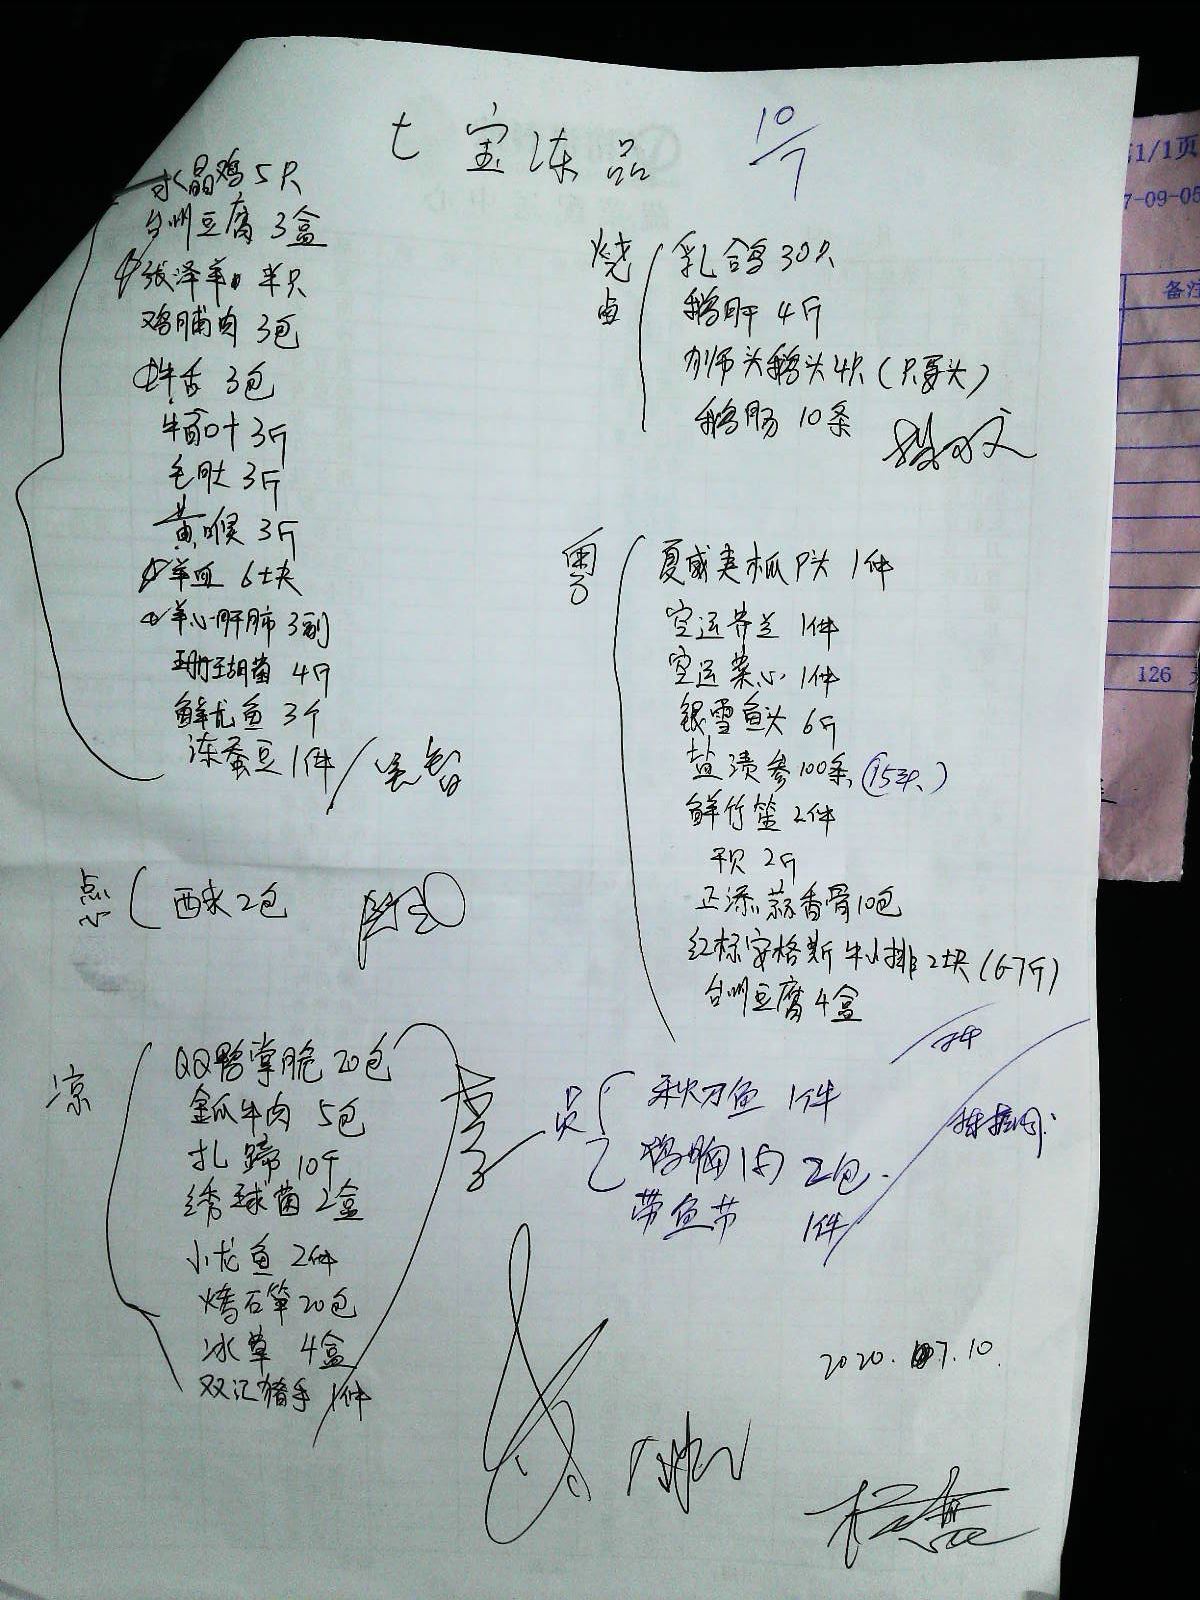 七宝冻品
10/7
水晶鸡 5只
台州豆腐 3盒
张泽羊肉 半只
鸡脯肉 3包
牛舌 3包
牛百叶 3斤
毛肚 3斤
黄喉 3斤
羊血 6块
羊心肝肺 3副
珊瑚菌 4斤
鲜尤鱼 3个
冻蚕豆 1件
点心
西米 2包
凉
QQ鸭掌脆 20包
金瓜牛肉 5包
扎蹄 10个
绣球菌 2盒
小龙鱼 2件
烤石笋 20包
冰草 4盒
双汇猪手 1件
烧卤
乳鸽 30只
鹅肝 4斤
狮头鹅头 4只(只要头)
鹅肠 10条
粤
夏威夷木瓜 1件
空运芥兰 1件
空运菜心 1件
银雪鱼头 6斤
盐渍参 100条(15头)
鲜竹笙 2件
干贝 2斤
正添蒜香骨 10包
红标安格斯牛小排 2块(6-7斤)
台州豆腐 4盒
员
秋刀鱼 1件
鸡胸肉 2包.
带鱼节 1件
2020.07.10.
1/1页
7-09-05
备注
126